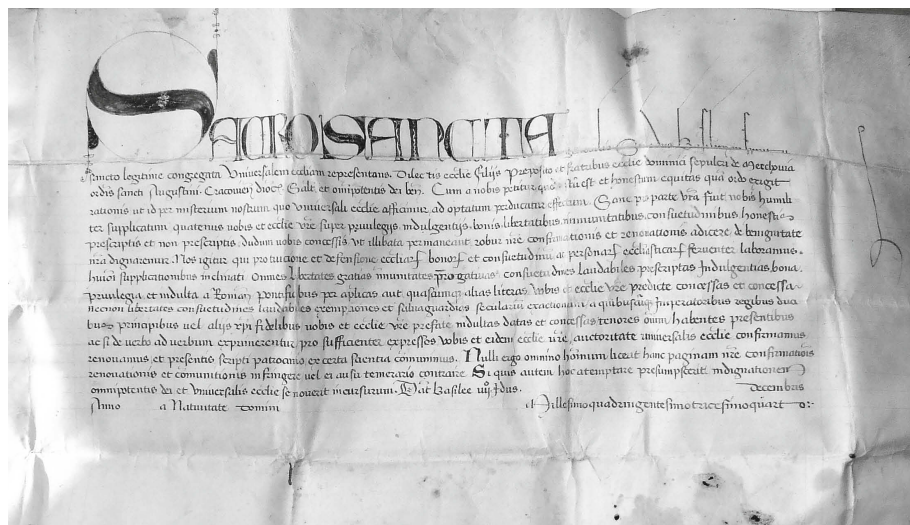 SACROSANCTA
Sancto legitime congregata Universalem eccliam representans. Dilectis ecclie filijs Preposito et fratribus ecclie dominici sepulcri de Mechovia
ordis sancti Augustini Cracovien dioc Salt et omipotentis dei ben. Cum a nobis petitur quod iustu est et honestum equitas qua ordo exigit
rationis ut id per misterium nostrum quo universali ecclie afficimur ad optatum perducatur effectum. Sane pro parte vra fuit nobis humili
ter supplicatum quatenus vobis et ecclie vre super privilegijs indulgentijs bonis libertatibus immunitatibus consuetudinibus honestis
prescriptis et non prescriptis dudum vobis concessis ut illibata permaneant robur nre confirmationis et renovationis adicere de benignitate
nra dignaremur. Nos igitur qui protectione et defensione eccliar bonor et consuetudinu ac personar ecclesiasticar ferventer laboramus.
huiusmodi supplicationibus inclinati. Omnes libertates gratias imunitates prerogativas consuetudines laudabiles prescriptas Indulgentias bona.
privilegia et indulta a Roman pontificibus per aplicas aut quascumqz alias literas vobis et ecclie vre predicte concessas et concessa
necnon libertates consuetudines laudabiles exemptiones et salvaguardias secularium exactionum a quibuscumqz Imperatoribus regibus duci
bus principibus vel alijs xpi fidelibus vobis et ecclie vre prefate indultas datas et concessas tenores omnium habentes presentibus
ac si de verbo ad verbum exprimerentur pro sufficienter expressis vobis et eidem ecclie vre, auctoritate universalis ecclie confirmamus
renovamus et presentis scripti patrocinio ex certa scientia comunimus. Nulli ergo omnino hominum liceat hanc paginam nre confirmationis
renovationis et comunitionis infringere vel ei ausu temerario contraire. Si quis autem hoc atemptare presumpserit indignationem
omnipotentis dei et Universalis ecclie se noverit incursurum. Dat Basilee Idus decembris
Anno a Nativitate domini Millesimoquadringentesimotricesimoquarto: